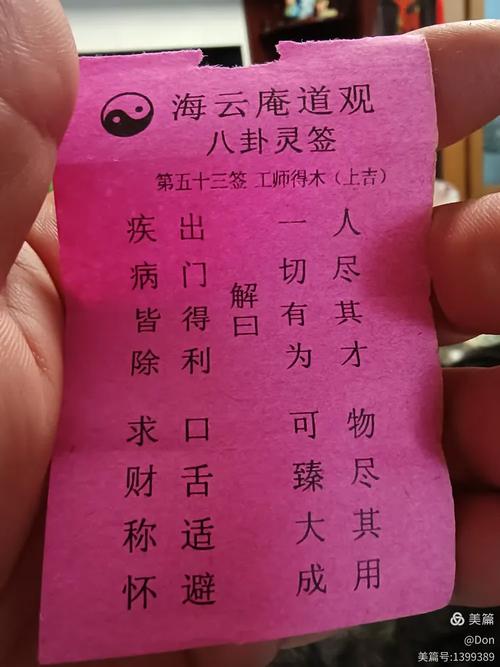 海云庵道观
八卦灵签
第五十三签 工师得木（上吉）
人尽其才 物尽其用
一切有为 可臻大成
解曰
出门得利 口舌适避
疾病皆除 求财称怀
美篇
@Don
美篇号:1399389